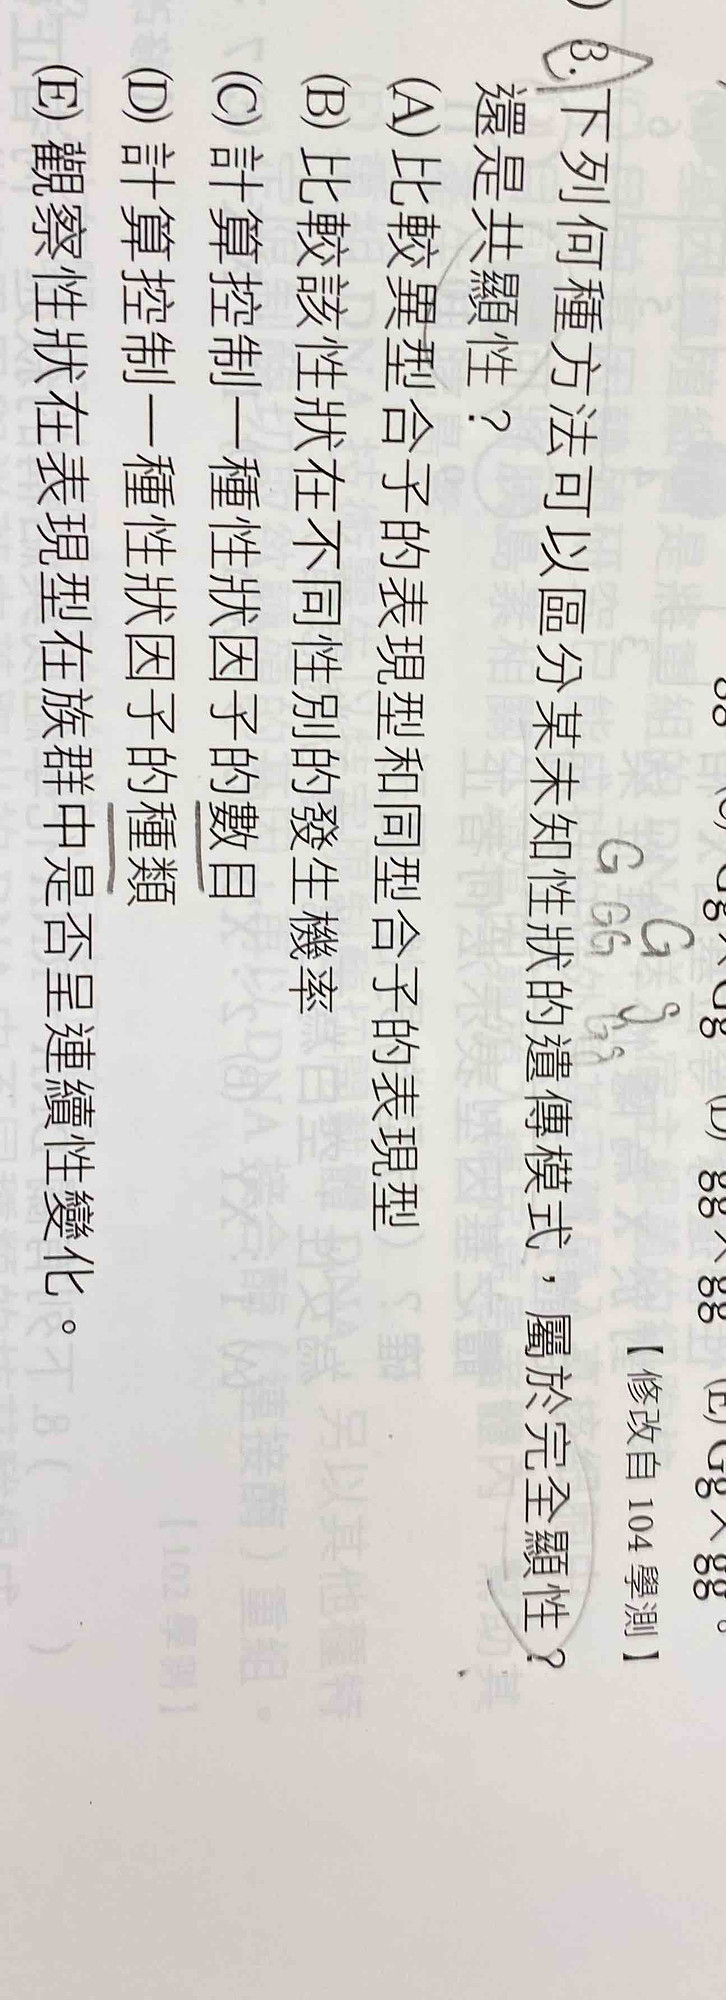 gg (C) Gg×Gg (D) gg×gg (E) Gg×gg。
【修改自 104 學測】
G g
G GG Gg
) 3. 下列何種方法可以區分某未知性狀的遺傳模式，屬於完全顯性？
還是共顯性？
(A) 比較異型合子的表現型和同型合子的表現型
(B) 比較該性狀在不同性別的發生機率
(C) 計算控制一種性狀因子的數目
(D) 計算控制一種性狀因子的種類
(E) 觀察性狀在表現型在族群中是否呈連續性變化。